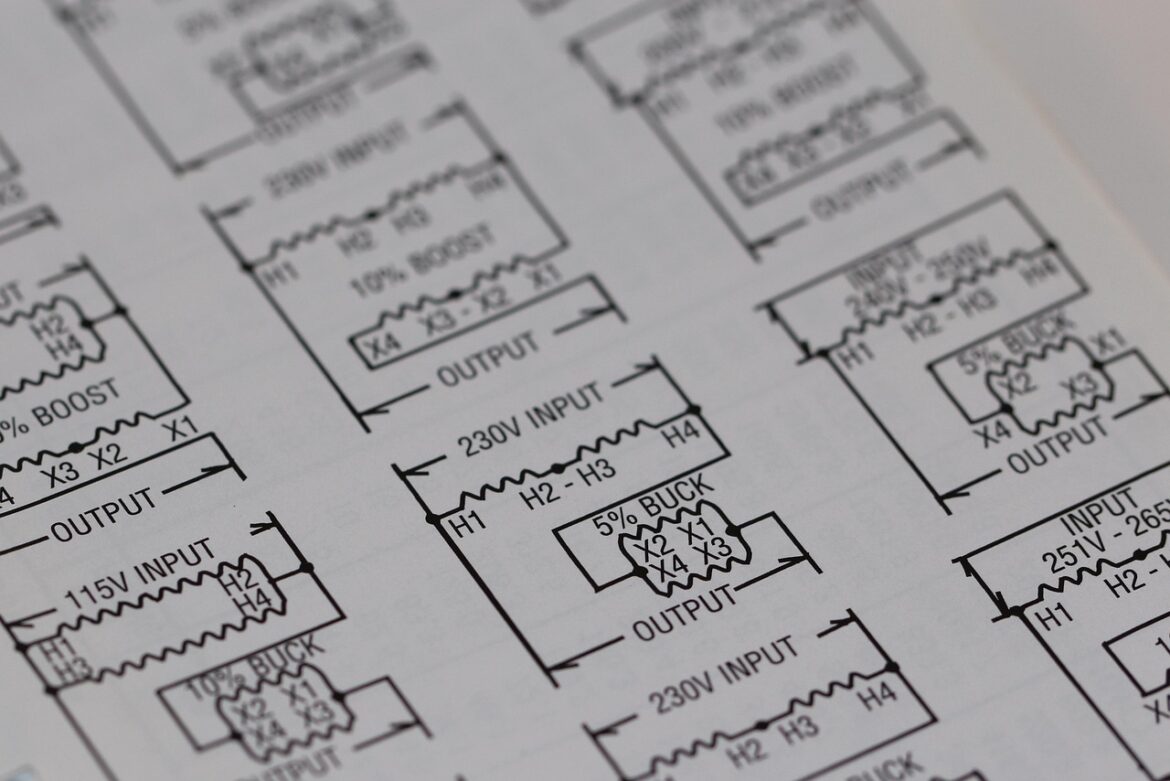 OUTPUT
230V INPUT
H2 H3 H4
H1
10% BOOST
X3 - X2 X1
X4
OUTPUT
H1
10% BOOST
OUTPUT
INPUT
240V - 250V
H4
H2 - H3
H1
5% BUCK X1
X2 X3
X4
OUTPUT
H2
H4
% BOOST
X1
X3 X2
OUTPUT
230V INPUT
H4
H2 - H3
H1
5% BUCK
X2 X1
X4 X3
OUTPUT
INPUT
251V - 265
H2 -
H1
115V INPUT
H2
H1 H4
H3
10% BUCK
X2 X1
X4 X3
OUTPUT
230V INPUT
H4
H2 H3
BUCK